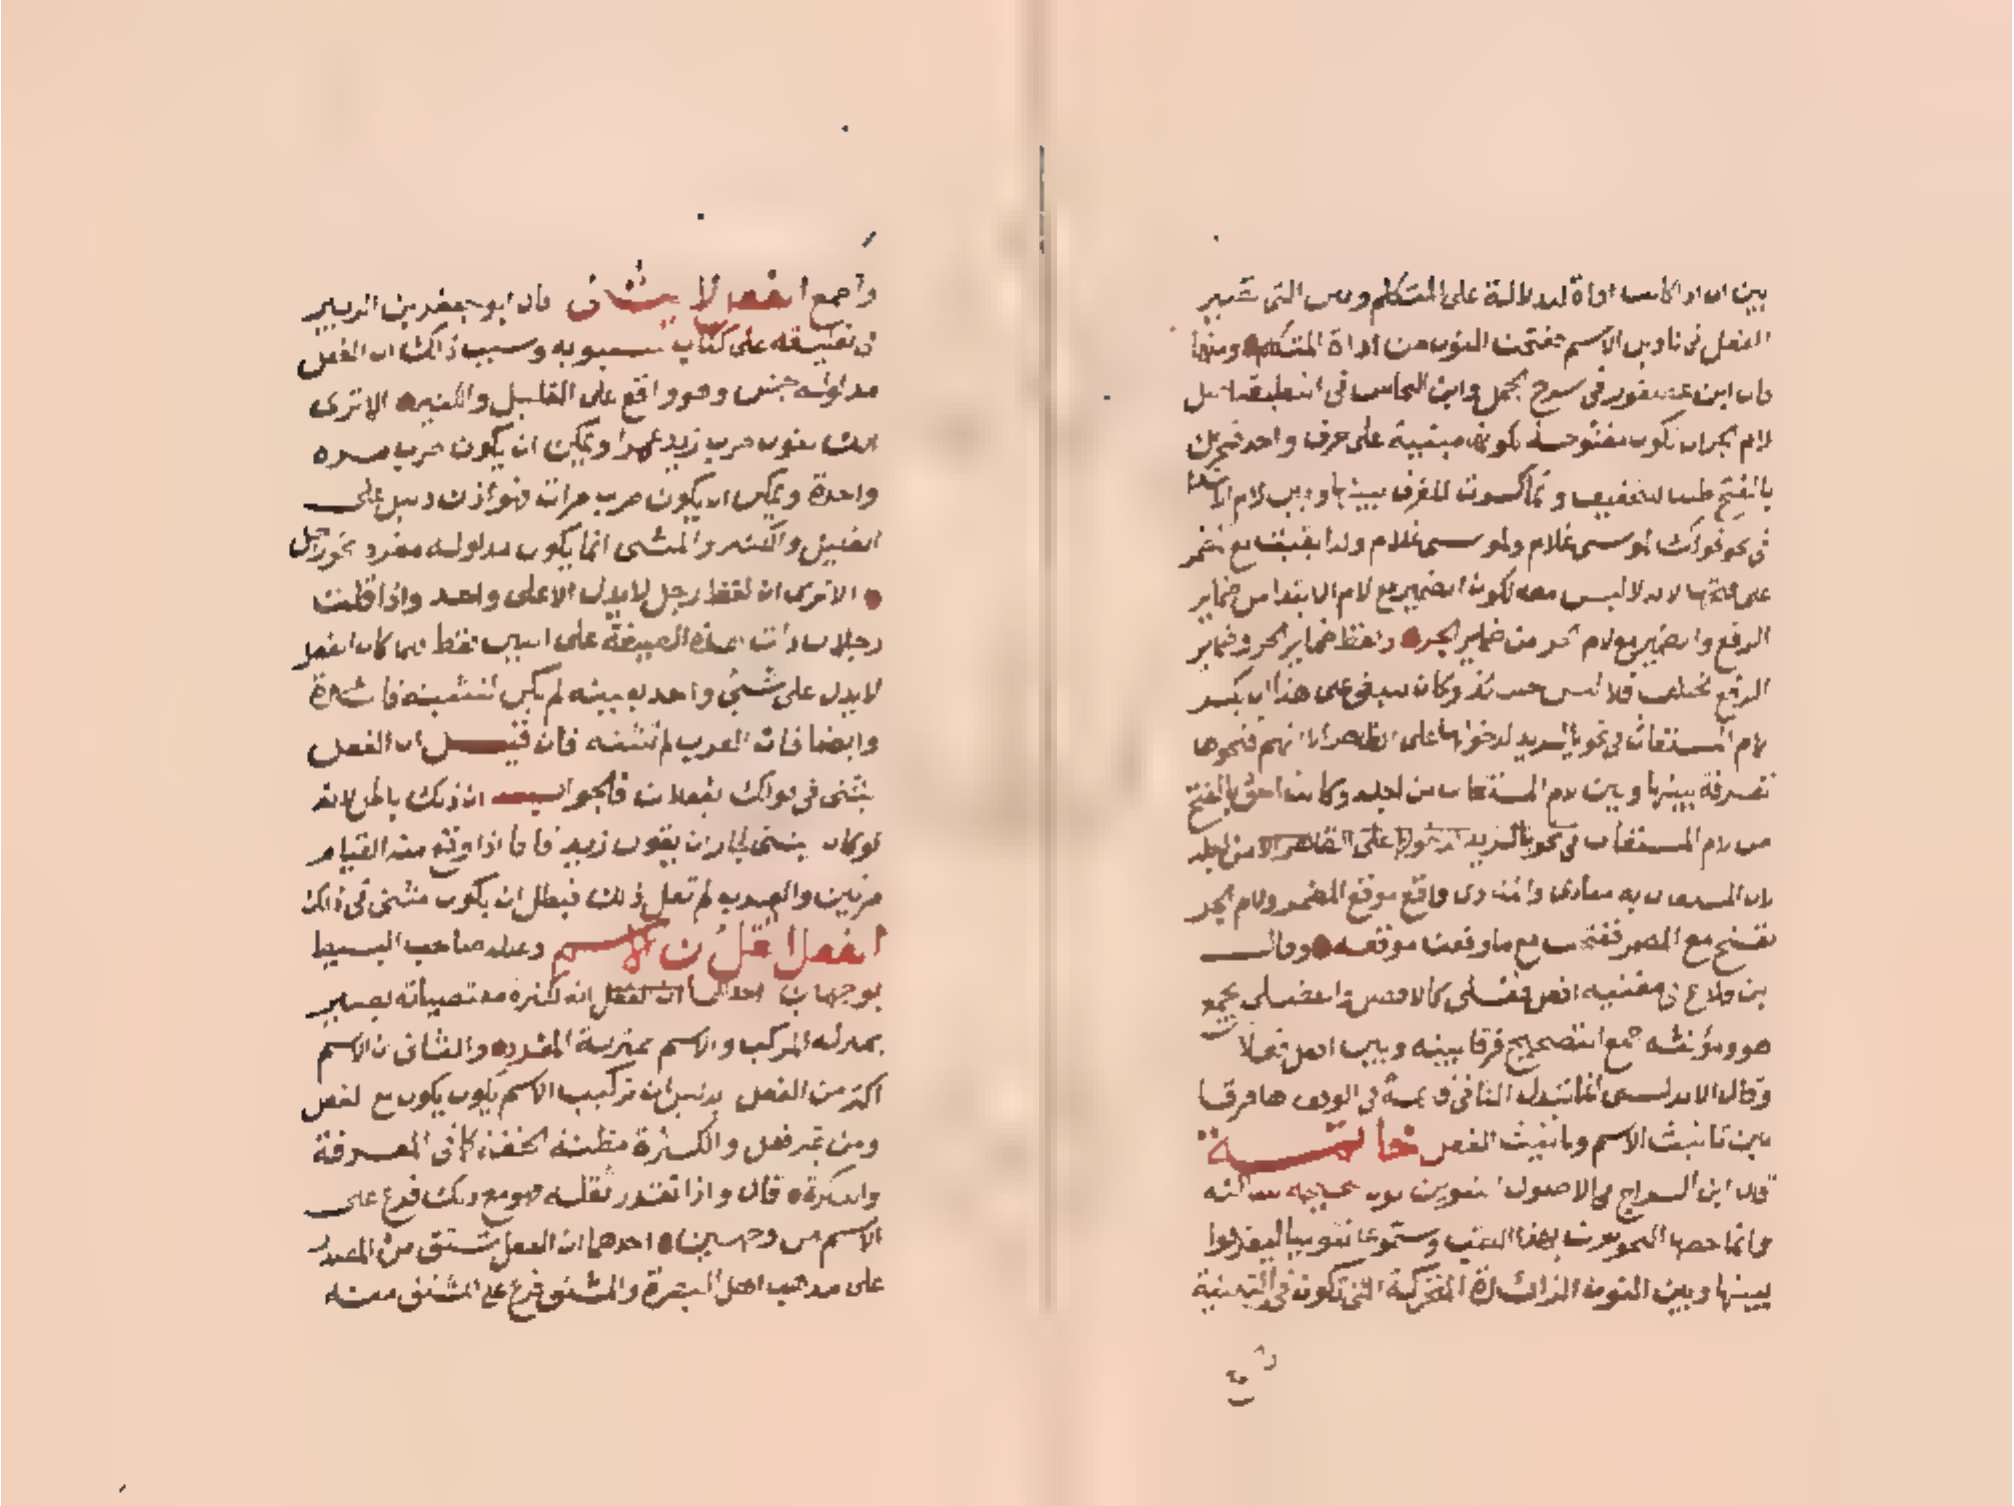 بين ان اذا كانت اداة للدلالة على المتكلم وبين التي تغير
الفعل في تاديب الاسم ففتحت النون من اداة المتكلم ومنها
قال ابن عصفور في شرح الجمل وابن النحاس في التعليقة اصل
لام الجر ان تكون مفتوحة لكونها مبنية على حرف واحد فتحرك
بالفتح طلبا للتخفيف وانما كسرت للفرق بينها وبين لام الابتداء
في نحو قولك لموسى غلام ولموسى غلام ولذا بقيت مع المضمر
على فتحها لانه لا لبس معه لكون الضمير مع لام الابتدا من ضماير
الرفع والضمير مع لام الجر من ضماير الجر ولفظ ضماير الجر وضماير
الرفع مختلف فلا لبس حينئذ وكان ينبغي على هذا ان تكسر
لام المستغاث في نحو يا لزيد لدخولها على الظاهر الا انهم فتحوها
تفرقة بينها وبين لام المستغاث من اجله وكانت احق بالفتح
من لام المستغاث في نحو يا لزيد لدخولها على الظاهر الا من اجله
لان المستغاث به منادى والمنادى واقع موقع المضمر ولام الجر
تفتح مع المضمر ففتحت مع ما وقعت موقعه وقال
بن فلاح في مغنيه افعل فعلى كالافضل والفضلى يجمع
هو ومؤنثه جمع التصحيح فرقا بينه وبين افعل فعلا
وقال الاندلسي انما تبدل التا في قايمة في الوقف ها فرقا
بين تانيث الاسم وتانيث الفعل خاتمة
قال ابن السراج في الاصول التنوين نون صحيحة ساكنة
وانما خصها النحويون بهذا اللقب وسموها تنوينا ليفرقوا
بينها وبين النون الزائدة المتحركة التي تكون في التثنية
والجمع الفعل لا يثنى قال ابو جعفر بن الزبير
في تعليقه على كتاب سيبويه وسبب ذلك ان الفعل
مدلوله جنس وهو واقع على القليل والكثير الا ترى
انك تقول ضرب زيد عمرا ويمكن ان يكون ضرب مرة
واحدة ويمكن ان يكون ضرب مرات فهو اذن دليل على
القليل والكثير والمثنى انما يكون مدلوله مفرد نحو رجل
الا ترى ان لفظ رجل لا يدل الا على واحد واذا قلت
رجلان دلت هذه الصيغة على اثنين فقط فلما كان الفعل
لا يدل على شيء واحد بعينه لم يكن لتثنيته فائدة
وايضا فان العرب لم تثنه فان قيل ان الفعل
يثنى في قولك يفعلان فالجواب ان ذلك باطل لانه
لو كان يثنى لجاز ان يقول زيد قاما اذا وقع منه القيام
مرتين والعرب لم تقل ذلك فبطل ان يكون مثنى في ذلك
الفعل اثقل من الاسم وعلله صاحب البسيط
بوجهين احدهما ان الفعل انه لكثرة مقتضياته يصير
بمنزلة المركب والاسم بمنزلة المفرد والثاني ان الاسم
اكثر من الفعل بدليل ان تركيب الاسم يكون يكون مع الفعل
ومن غير فعل والكثرة مظنة الخفة كما في المعرفة
والنكرة قال واذا تقدر ثقله فهو مع ذلك فرع على
الاسم من وجهين احدهما ان الفعل مشتق من المصدر
على مذهب اهل البصرة والمشتق فرع على المشتق منه